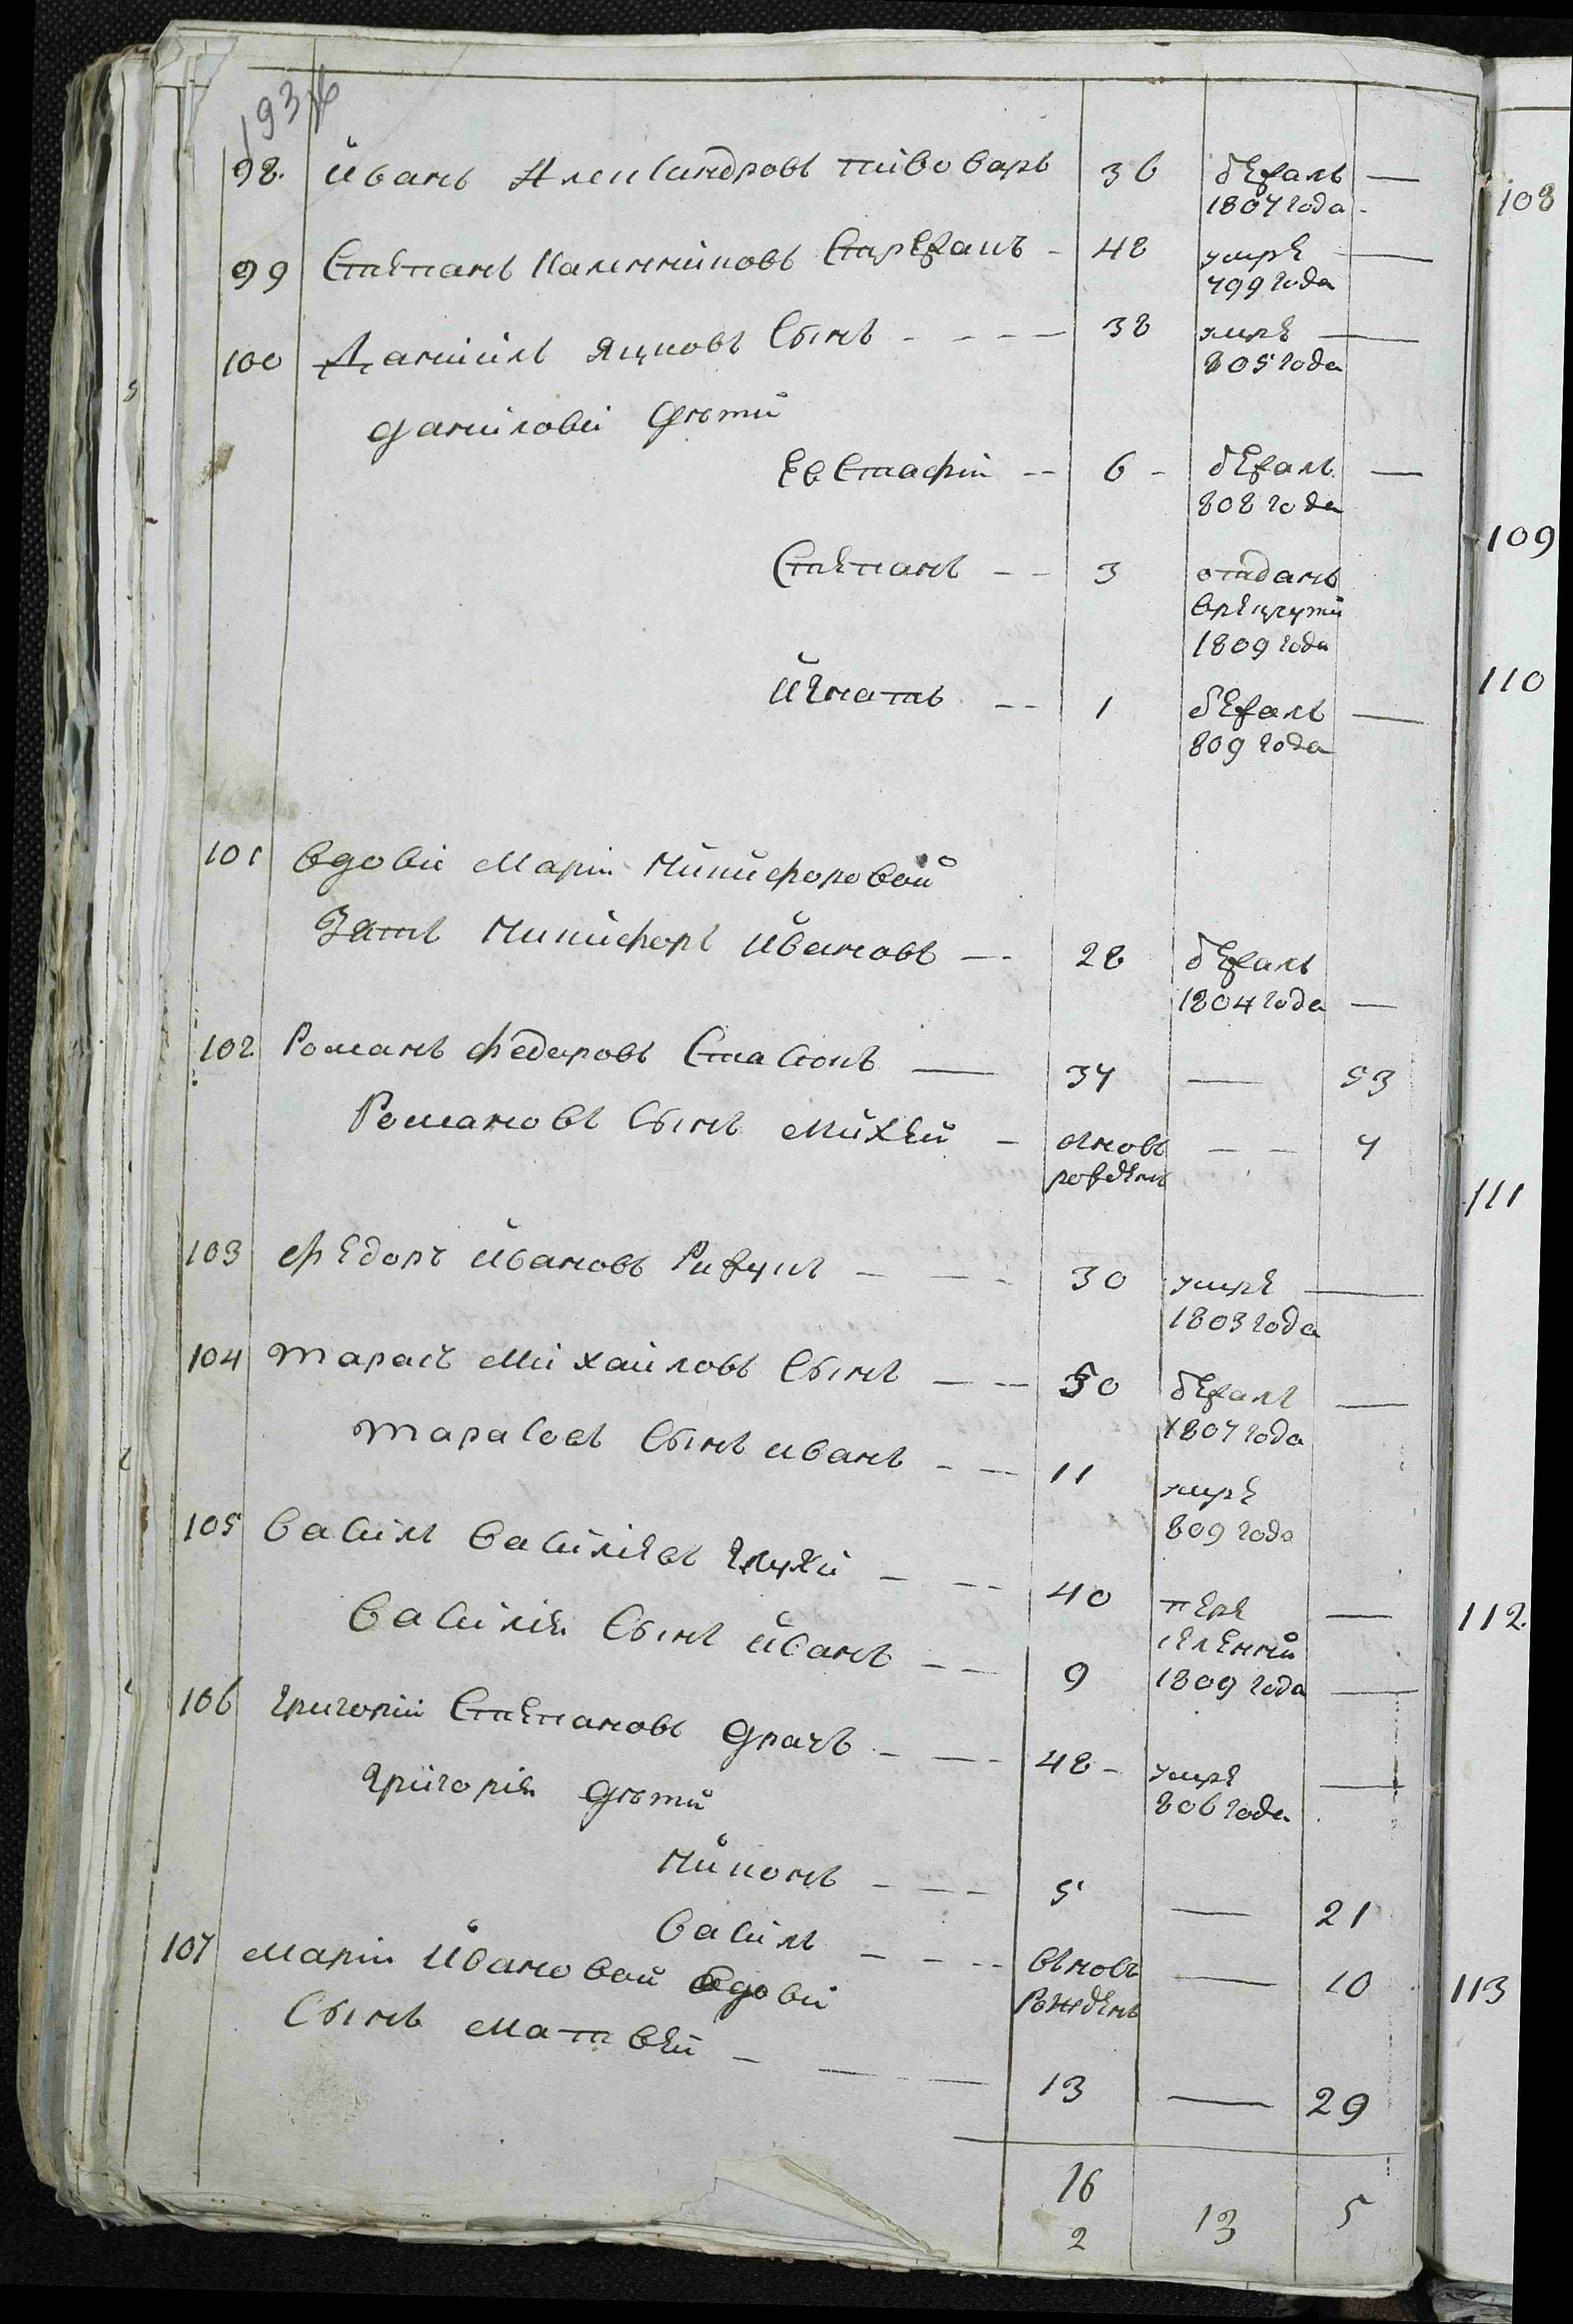 193 об
98. Иванъ Александровъ пивоваръ 36 бежалъ —
1807 года.
99 Степанъ Калениковъ Стрежакъ - 48 умре —
799 года
100 Даниилъ Яцковъ Сынъ - - - — 38 умре —
805 года
данилови дѣти
Евстафiй -- 6 - бежалъ —
808 года
Степанъ -- 3 отданъ
врекруты
1809 года
Игнатъ -- 1 бежалъ —
809 года
101 вдови Марiи Никифоровой
Зять Никифоръ Ивановъ -- 28 бежалъ
1804 года —
102 Романъ Федоровъ Стасюкъ — 37 — 53
Романовъ Сынъ Михей - вновь — - 7
рожденъ
103 Федоръ Ивановъ Рижукъ - - - 30 умре —
1803 года
104 Тарасъ Михаиловъ Сынъ — - 50 бежалъ —
1807 года
Тарасовъ Сынъ иванъ - — 11 умре
809 года
105 Василь Василiевъ глухiй - -- 40 пере —
селенны
Василiя Сынъ Иванъ - — 9 1809 года —
106 григорiй Степановъ драчъ - — 48 - умре —
806 года
григорiя дѣти
Никонъ - — - 5 — 21
Василь - - -- вьновь — 10
Рожденъ
107 Марiи Ивановой вдови
Сынъ Матвей - — — 13 — 29
16 13 5
2
108
109
110
111
112.
113